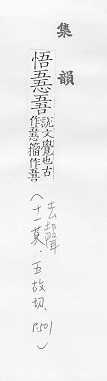 集韻
悟
說文覺也古
作籀作
（去聲
十一莫．五故切，P.501）